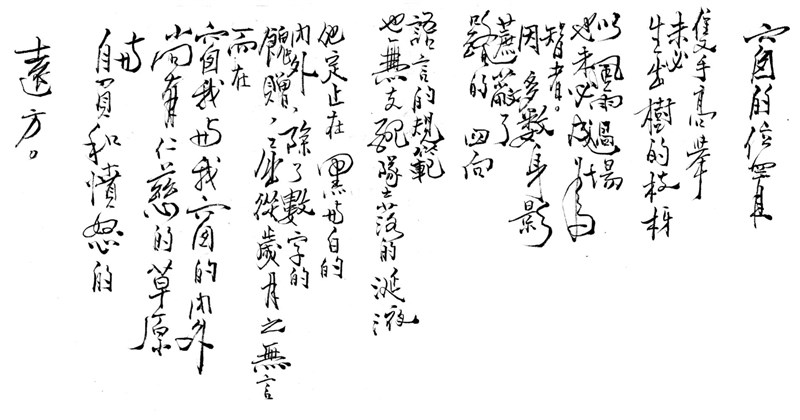 窗的位置
隻手高舉
未必
生出樹的枝枒
以風雨過場
也未必成為
智者。
因多數身影
遮蔽了
路的四向
語言的規範
也無支配墜落的涎液
定止在黑與白的
內外，除了數字的
餽贈，並從歲月之無言
而在
窗我與我窗的內外
尚有仁慈的草原
與
自負和憤怒的
遠方。